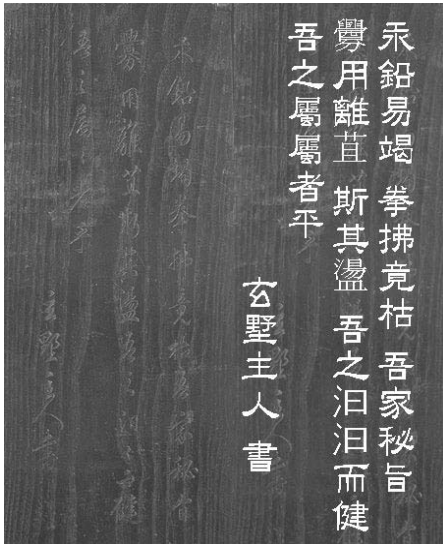 汞鉛易竭 拳拂竟枯 吾家秘旨
釁用離苴 斯其盪 吾之汩汩而健
吾之屬屬者平
玄墅主人 書